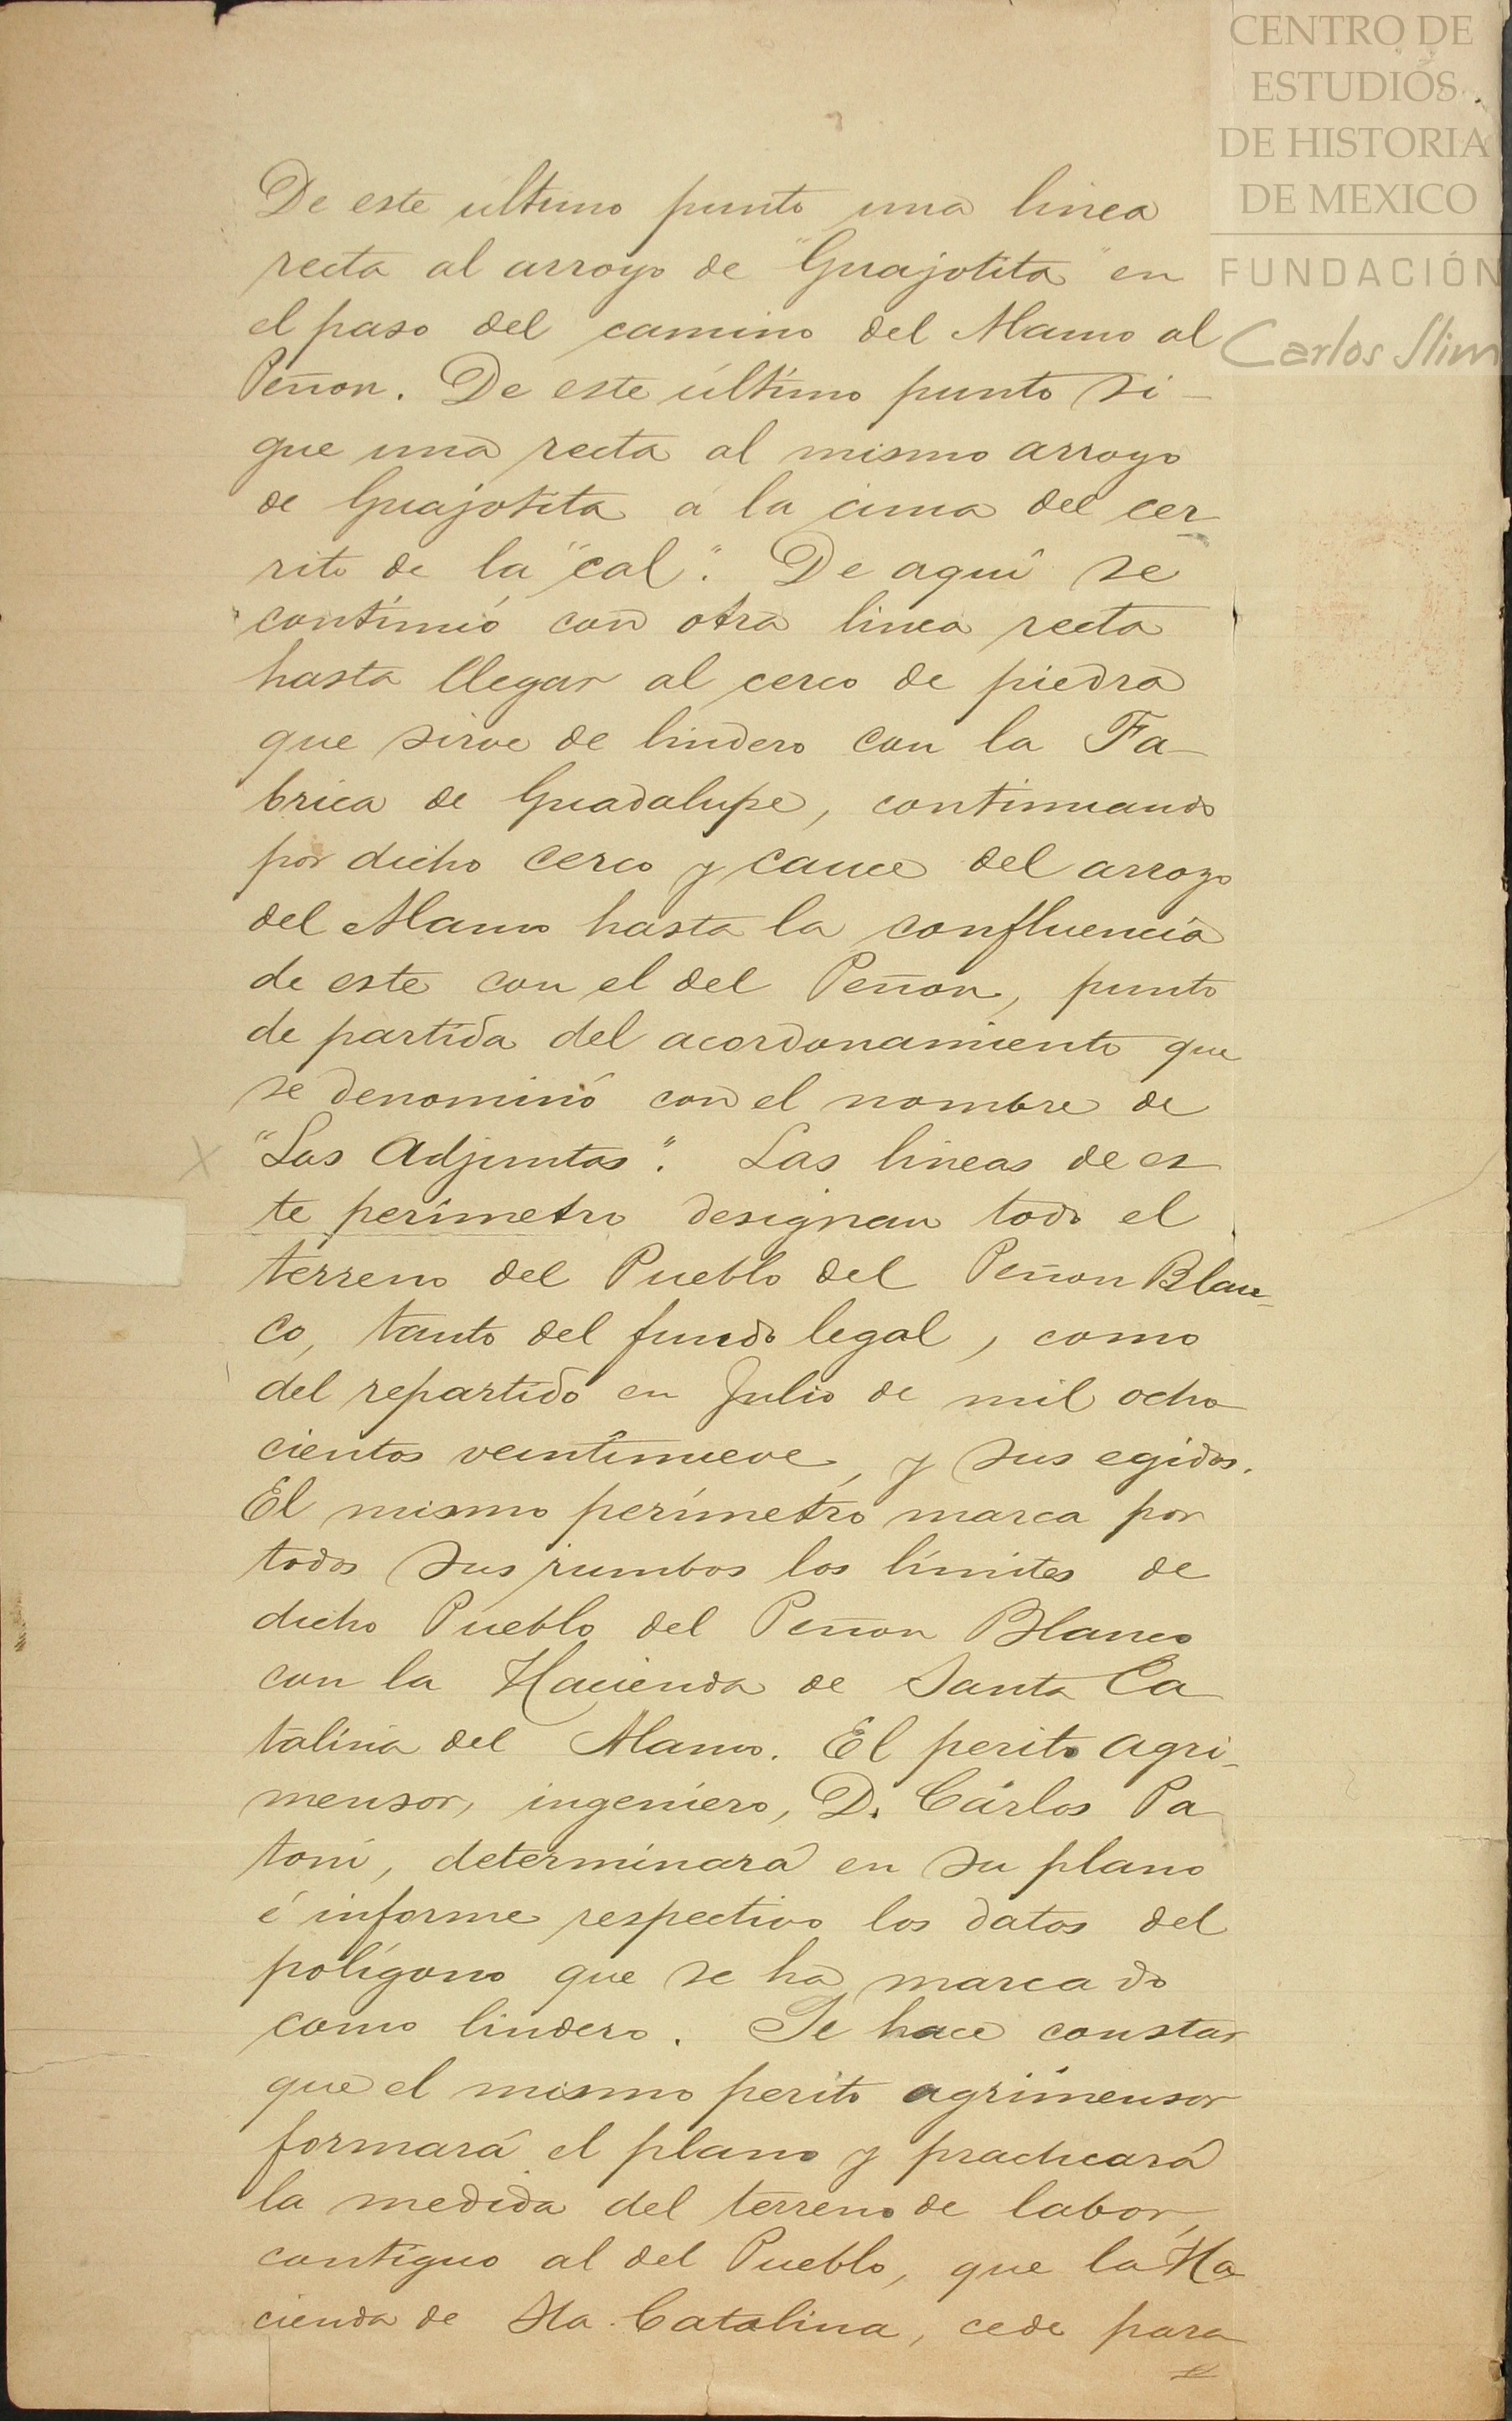 CENTRO DE
ESTUDIOS
DE HISTORIA
DE MEXICO
FUNDACIÓN
Carlos Slim
De este último punto una linea
recta al arroyo de "Guajotita" en
el paso del camino del Alamo al
Peñon. De este último punto si-
gue una recta al mismo arroyo
de Guajotita á la cima del cer-
rito de la "cal". De aquí se
continuó con otra linea recta
hasta llegar al cerco de piedra
que sirve de lindero con la Fa-
brica de Guadalupe, continuando
por dicho cerco y cauce del arroyo
del Alamo hasta la confluencia
de este con el del Peñon, punto
de partida del acordonamiento que
se denominó con el nombre de
"Las Adjuntas". Las lineas de es-
te perímetro designan todo el
terreno del Pueblo del Peñon Blan-
co, tanto del fundo legal, como
del repartido en Julio de mil ocho-
cientos veintinueve, y sus egidos.
El mismo perímetro marca por
todos sus rumbos los límites de
dicho Pueblo del Peñon Blanco
con la Hacienda de Santa Ca-
talina del Alamo. El perito agri-
mensor, ingeniero, D. Cárlos Pa-
toni, determinará en su plano
é informe respectivo los datos del
polígono que se ha marcado
como lindero. Se hace constar
que el mismo perito agrimensor
formará el plano y practicará
la medida del terreno de labor,
contiguo al del Pueblo, que la Ha-
cienda de Sta. Catalina, cede para